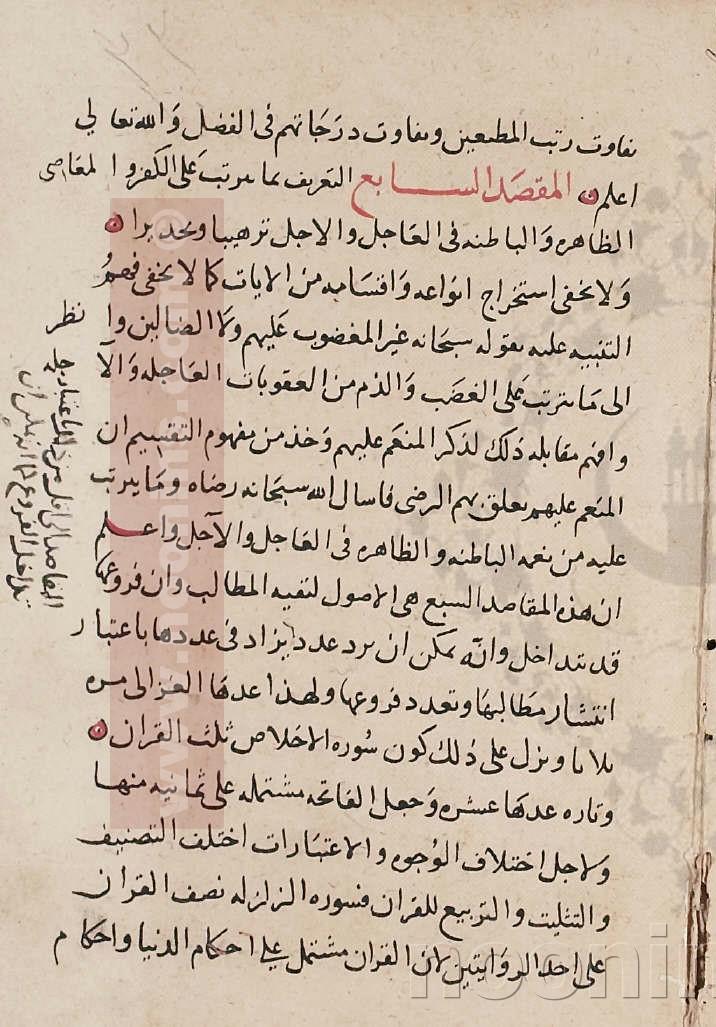 تفاوت رتب المطيعين وتفاوت درجاتهم فى الفضل والله تعالي
اعلم ۞ المقصد السابع التعريف بما يترتب على الكفر والمعاصى
الظاهره والباطنه فى العاجل والاجل ترهيبا وتحذيرا ۞
ولا يخفى استخراج انواعه واقسامه من الايات كما لا يخفى فهم
التنبيه عليه بقوله سبحانه غير المغضوب عليهم ولا الضالين وانظر
الى ما يترتب على الغضب والذم من العقوبات العاجله والآ
وافهم مقابله ذلك لذكر المنعم عليهم وخذ من مفهوم التقسيم ان
المنعم عليهم تعلق بهم الرضى فاسال الله سبحانه رضاه وما يترتب
عليه من نعمه الباطنه والظاهره فى العاجل والآجل واعلم
ان هذه المقاصد السبع هى الاصول لبقيه المطالب وان فروعها
قد تتداخل وانه يمكن ان يرد عدد يزاد فى عددها باعتبار
انتشار مطالبها وتعدد فروعها ولهذا عدها الغزالى مره
ثلاثا ونزل على ذلك كون سوره الاخلاص ثلث القران ۞
وتاره عدها عشره وجعل الفاتحه مشتمله على ثمانيه منها
ولاجل اختلاف الوجوه والاعتبارات اختلف التصنيف
والتثليت والتربيع للقران فسوره الزلزله نصف القران
على احد الروايتين لان القران مشتمل على احكام الدنيا واحكام
المقاصد الى اقل من ذلك باعتبار
تداخل الفروع
noonin